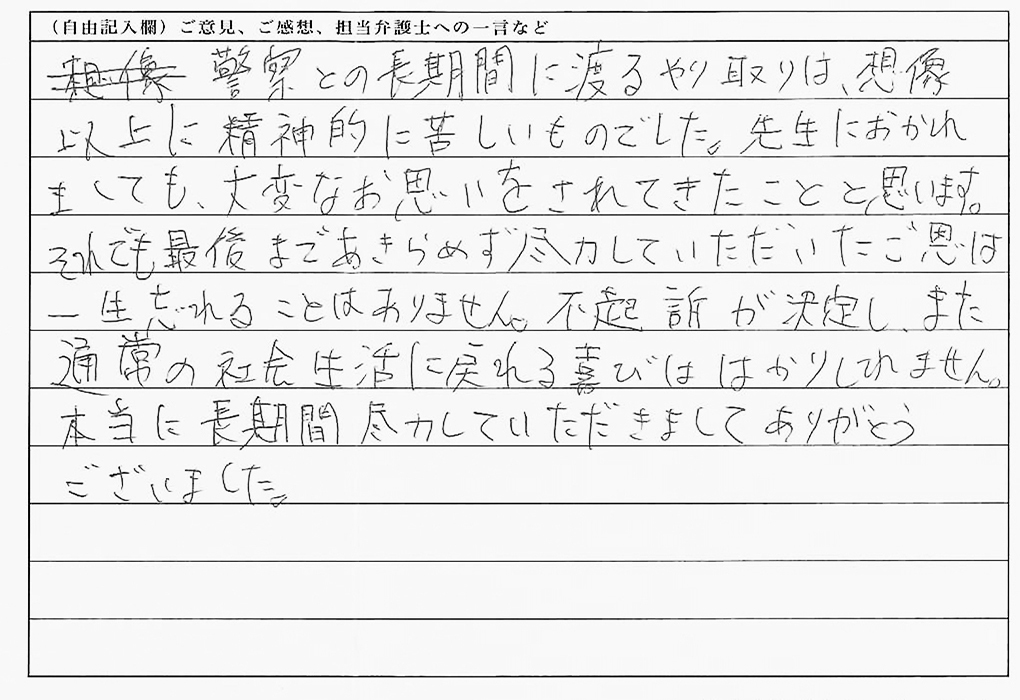 （自由記入欄）ご意見、ご感想、担当弁護士への一言など
想像 警察との長期間に渡るやり取りは、想像
以上に精神的に苦しいものでした。先生におかれ
ましても、大変なお思いをされてきたことと思います。
それでも最後まであきらめず尽力していただいたご恩は
一生忘れることはありません。不起訴が決定し、また
通常の社会生活に戻れる喜びははかりしれません。
本当に長期間尽力していただきましてありがとう
ございました。